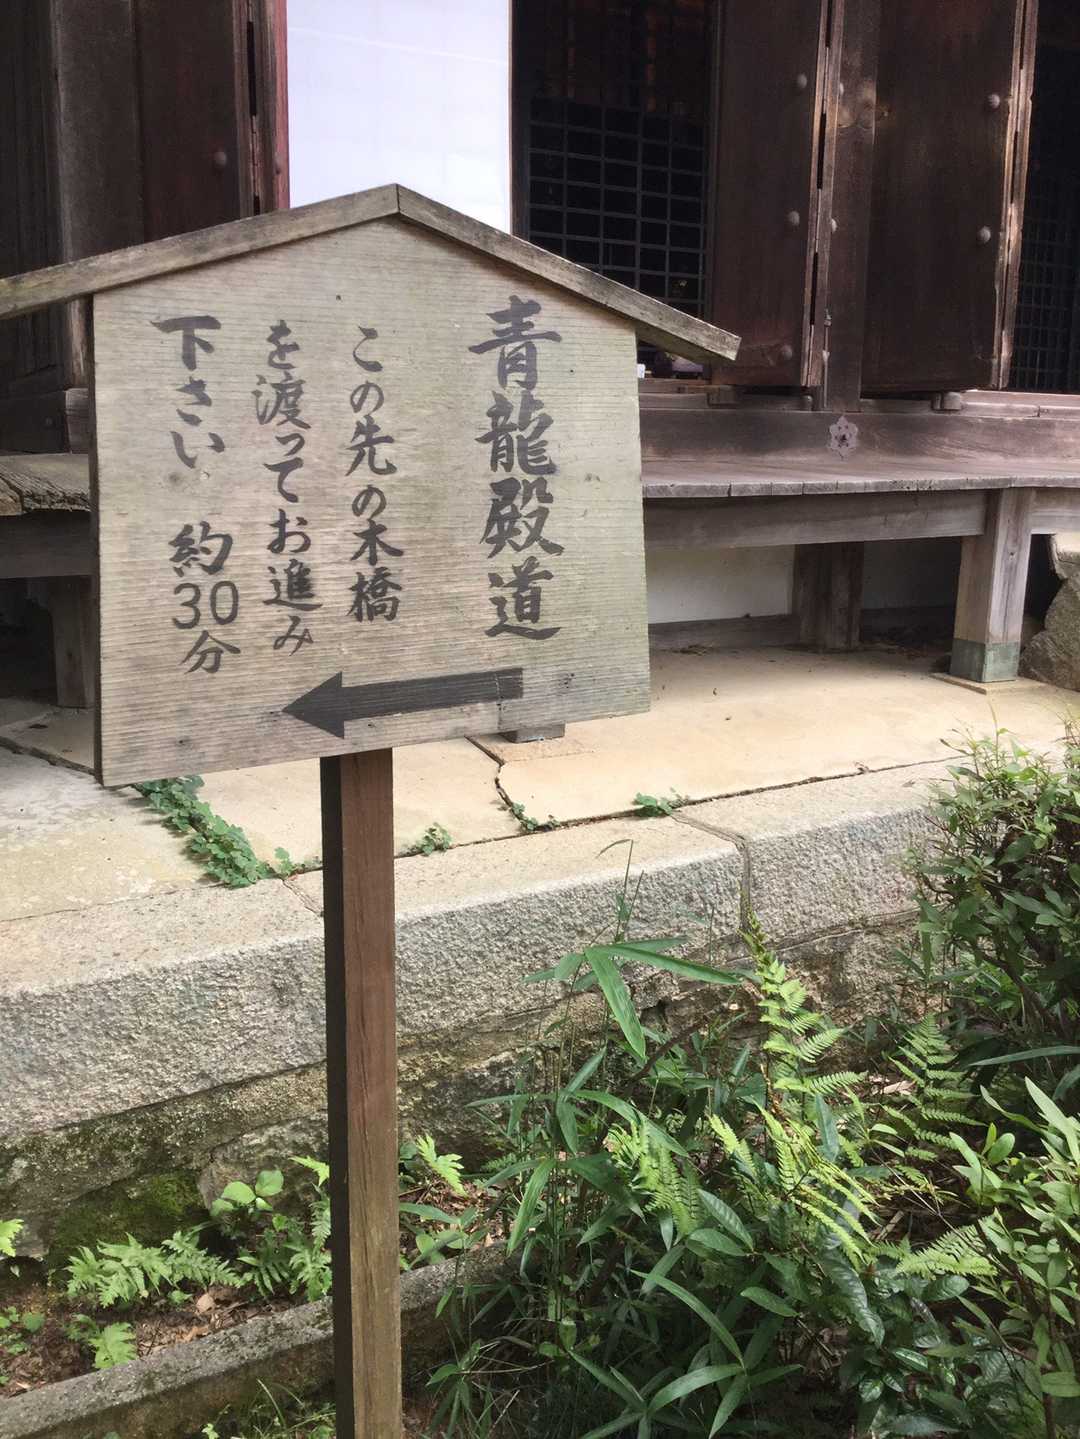 青龍殿道
この先の木橋
を渡ってお進み
下さい 約30分